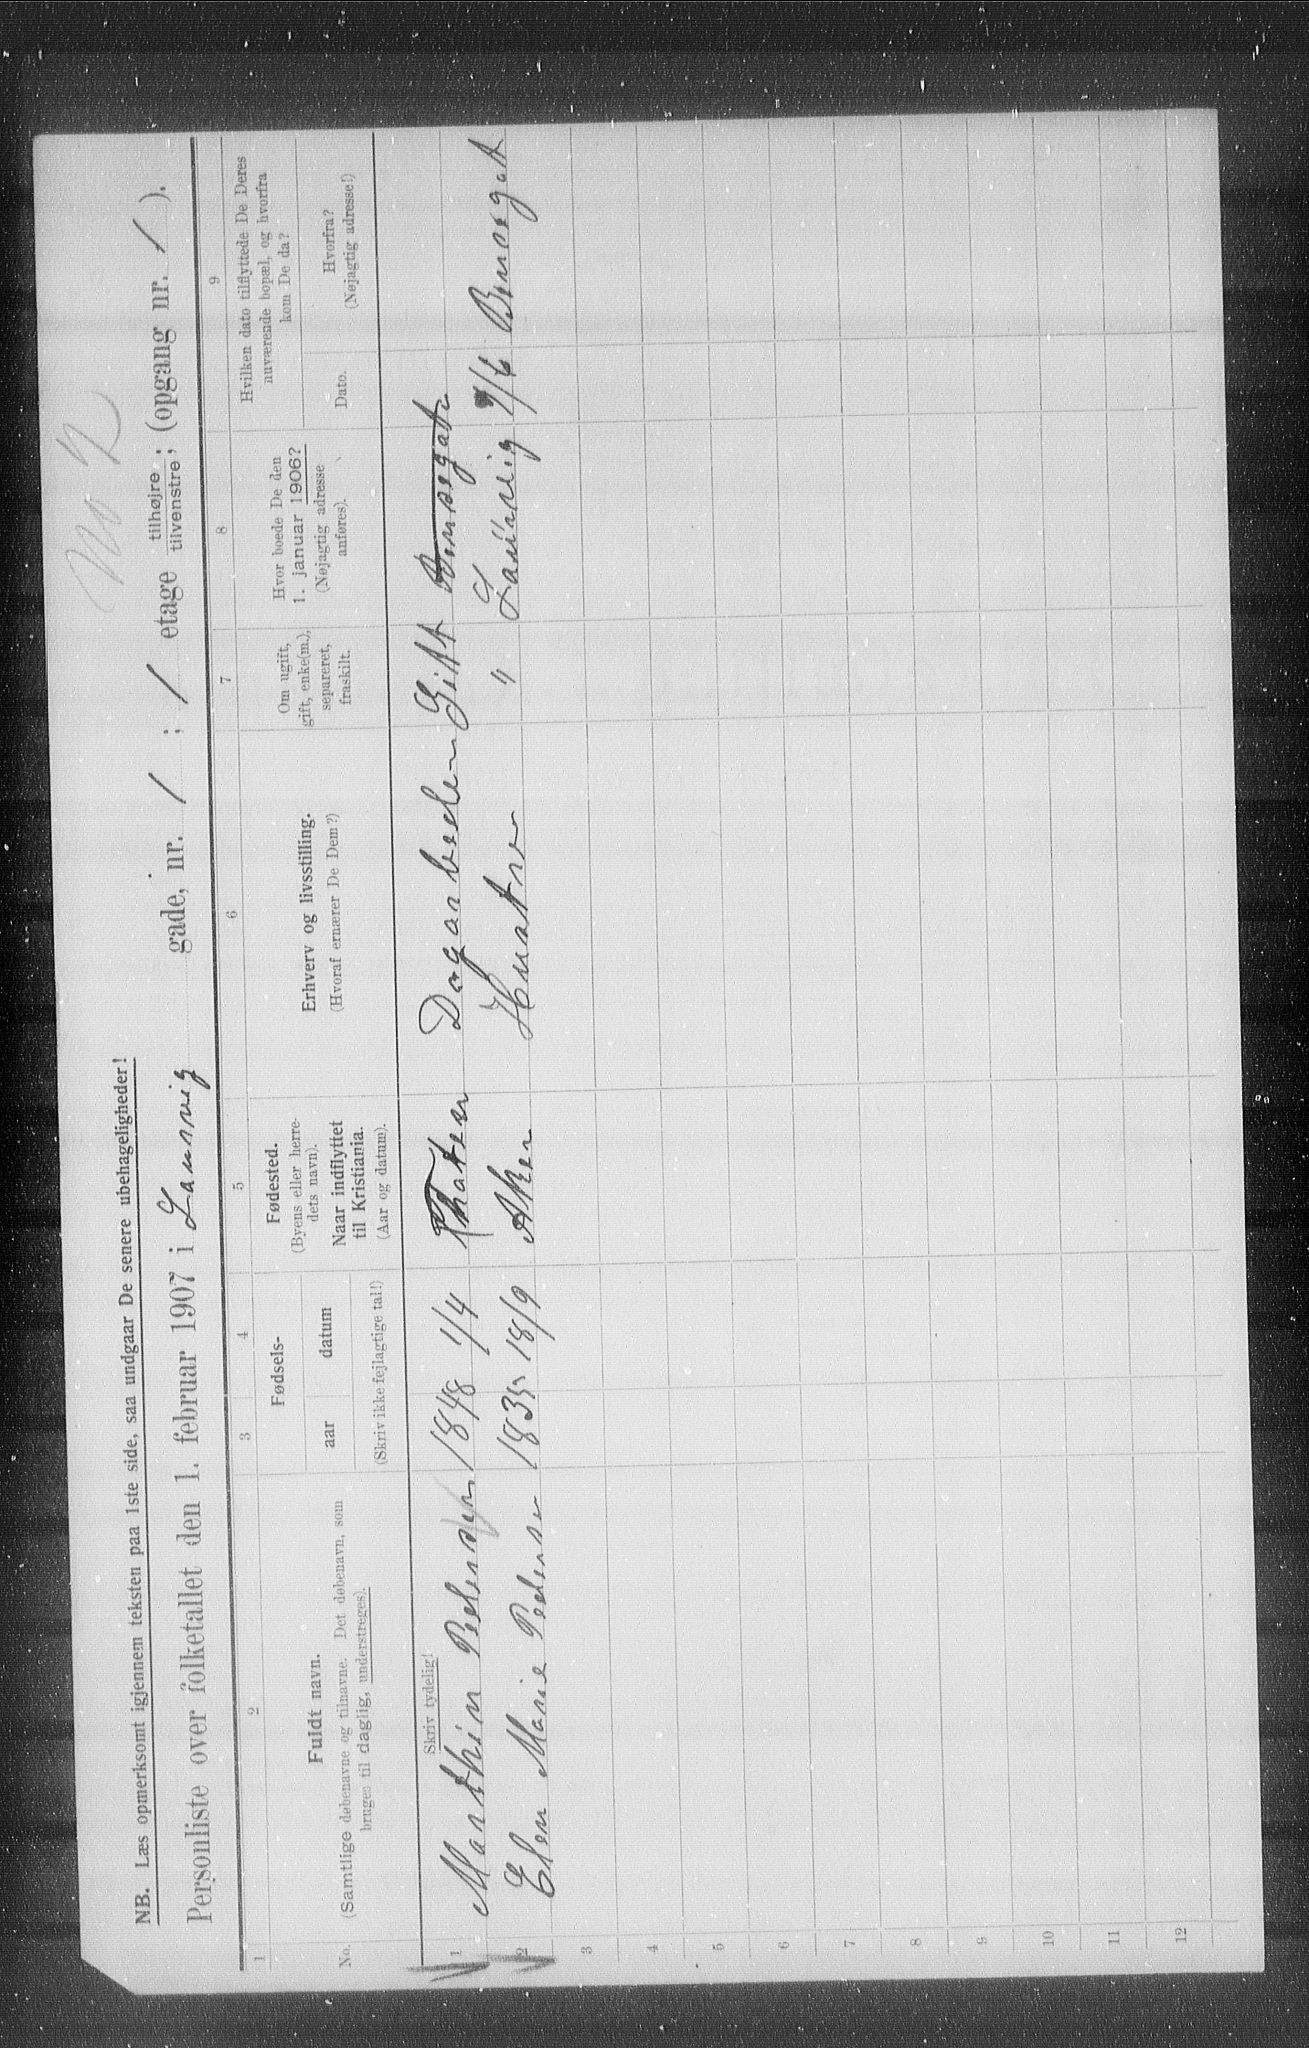 No 2
NB. Læs opmerksomt igjennem teksten paa 1ste side, saa undgaar De senere ubehageligheder!
Personliste over folketallet den 1. februar 1907 i Lansvig gade, nr. 1 ; 1 etage tilhøjre tilvenstre; (opgang nr. 1 ).
1 2 3 4 5 6 7 8 9
No.
Fuldt navn.
(Samtlige døbenavne og tilnavne. Det døbenavn, som
bruges til daglig, understreges).
Fødsels-
aar datum
(Skriv ikke fejlagtige tal!)
Fødested.
(Byens eller herre-
dets navn).
Naar indflyttet
til Kristiania.
(Aar og datum).
Erhverv og livsstilling.
(Hvoraf ernærer De Dem?)
Om ugift,
gift, enke(m.),
separeret,
fraskilt.
Hvor boede De den
1. januar 1906?
(Nøjagtig adresse
anføres).
Hvilken dato tilflyttede De Deres
nuværende bopæl, og hvorfra
kom De da?
Dato.
Hvorfra?
(Nøjagtig adresse!)
Skriv tydelig!
1 Marthin Pedersen 1848 1/4 Dagarbeider Gift
2 Elen Marie Pedersen 1835 18/9 Aker Hustru " Lansvig
3
4
5
6
7
8
9
10
11
12